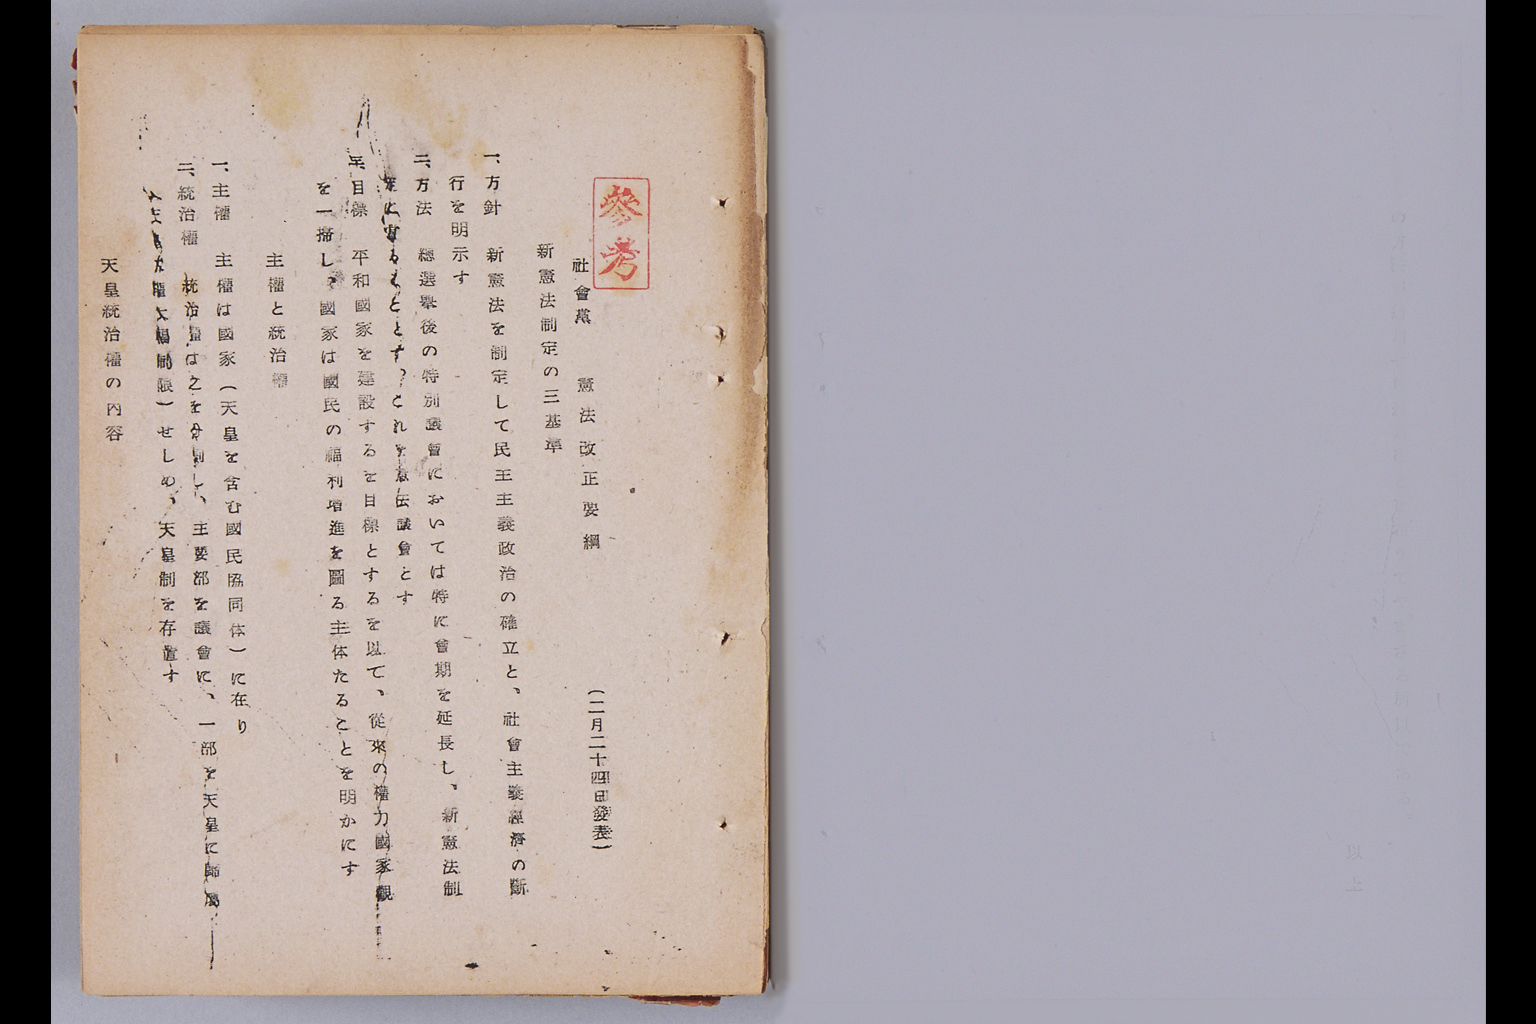 參考
社會黨 憲法改正要綱 (二月二十四日發表)
新憲法制定の三基準
一、方針 新憲法を制定して民主主義政治の確立と、社會主義經濟の斷
行を明示す
二、方法 總選擧後の特別議會においては特に會期を延長し、新憲法制
することとす、これを憲法議會とす
目標 平和國家を建設するを目標とするを以て、從來の權力國家觀
を一掃し、國家は國民の福利增進を圖る主体たることを明かにす
主權と統治權
一、主權 主權は國家(天皇を含む國民協同体)に在り
二、統治權 統治權は之を分割し、主要部を議會に、一部を天皇に歸屬
權大幅制限)せしめ、天皇制を存置す
天皇統治權の內容